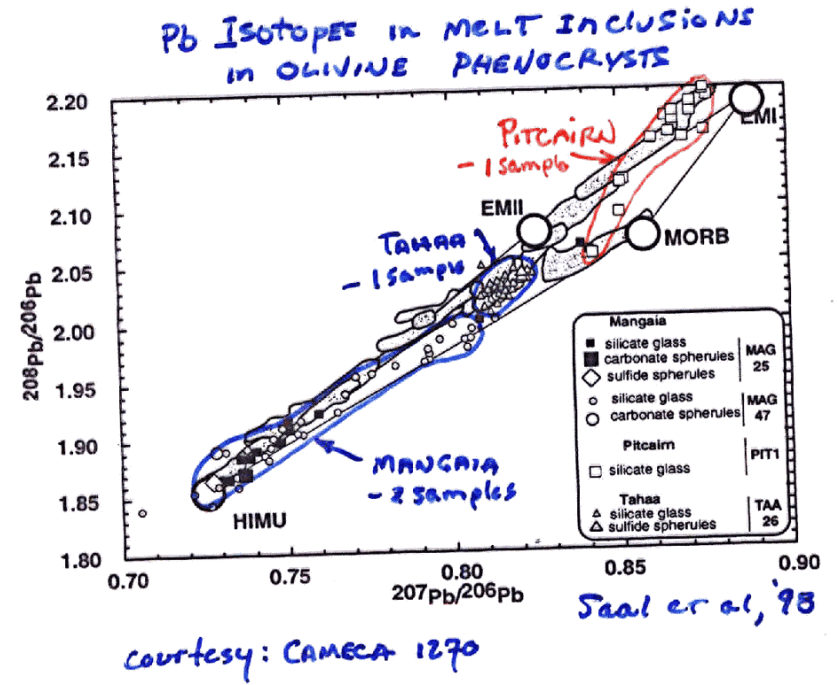 Pb Isotopes in MELT InclusIONS
in OLIVINE PHENOCRYSTS
2.20
2.15
2.10
2.05
2.00
1.95
1.90
1.85
1.80
208Pb/206Pb
0.70
0.75
0.80
0.85
0.90
207Pb/206Pb
PITCAIRN
- 1 sample
EMI
EMII
MORB
TAHAA
- 1 sample
MANGAIA
- 2 samples
HIMU
Mangaia
silicate glass
carbonate spherules
sulfide spherules
MAG
25
silicate glass
carbonate spherules
MAG
47
Pitcairn
silicate glass
PIT1
Tahaa
silicate glass
sulfide spherules
TAA
26
Saal et al, '98
courtesy: CAMECA 1270